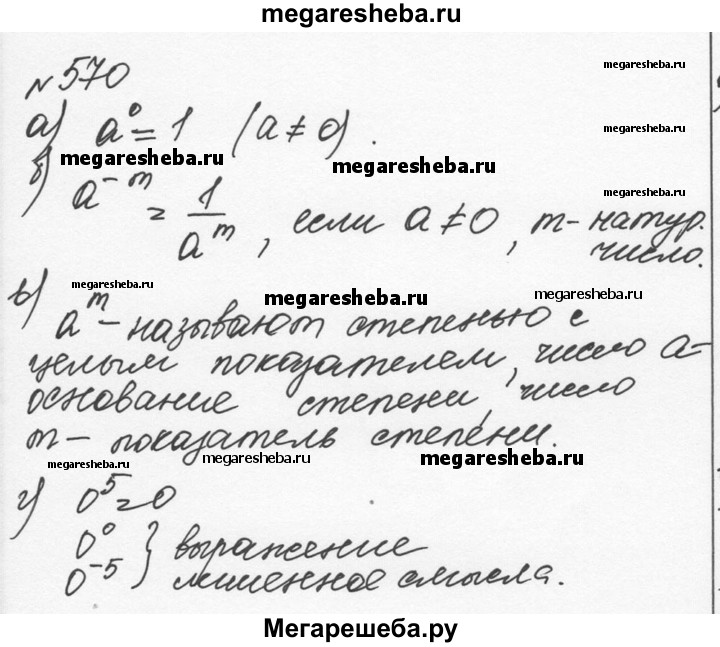 megaresheba.ru
№570
megaresheba.ru
а) a⁰ = 1 (a ≠ 0).
megaresheba.ru
megaresheba.ru megaresheba.ru
б) a⁻ᵐ = 1/aᵐ, если a ≠ 0, m - натур.
megaresheba.ru
число.
megaresheba.ru megaresheba.ru megaresheba.ru
в) aᵐ - называют степенью с
целым показателем, число a -
основание степени, число
m - показатель степени.
megaresheba.ru megaresheba.ru megaresheba.ru
г) 0⁵ = 0
0⁰ } выражение
0⁻⁵ } лишенное смысла.
Мегарешеба.ру